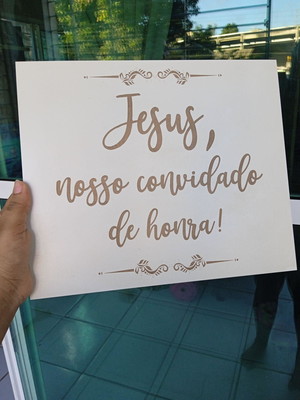 Jesus,
nosso convidado
de honra!